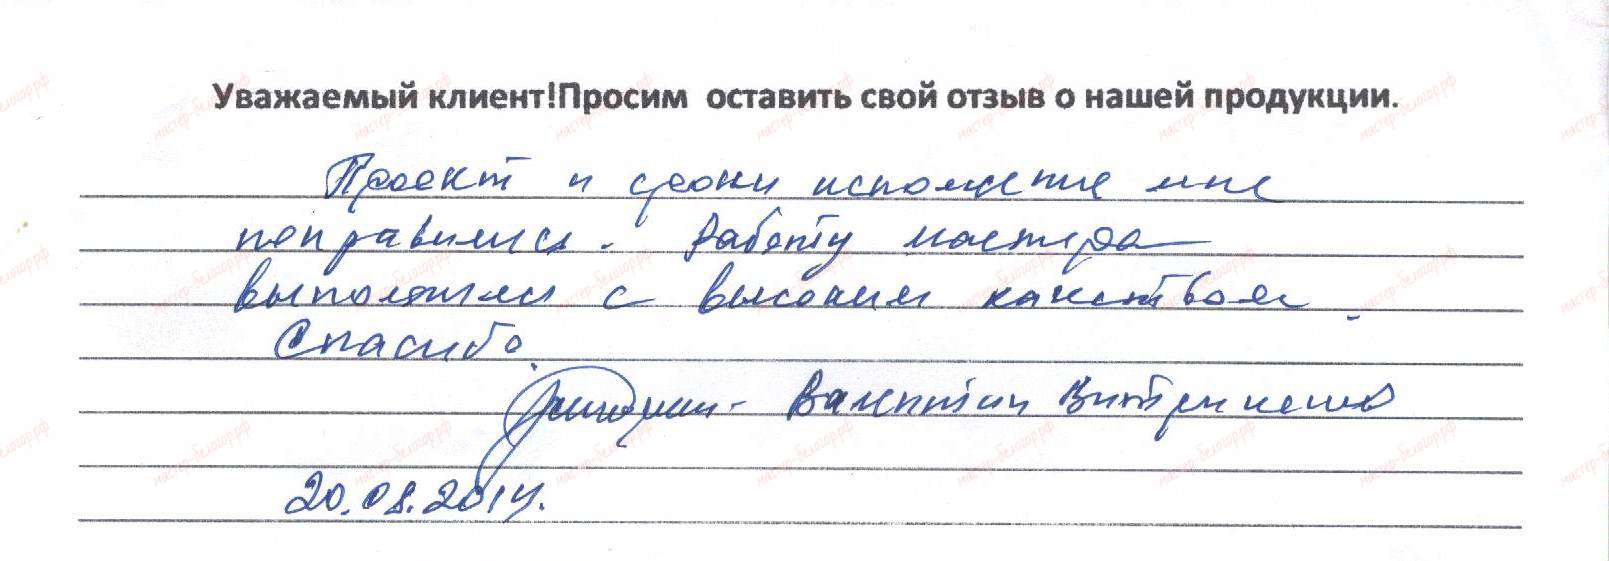 Уважаемый клиент!Просим оставить свой отзыв о нашей продукции.
Проект и сроки исполнение мне
понравились. Работу мастера
выполнили с высоким качеством.
Спасибо.
Валентин
20.08.2014.
мастер-белогор.рф